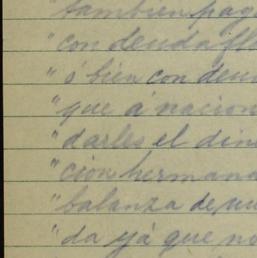 "también pag
"con deuda flo
"ó bien con deu
"que á nacion
"darles el din
"cion hermana
"balanza de nu
"da yá que no